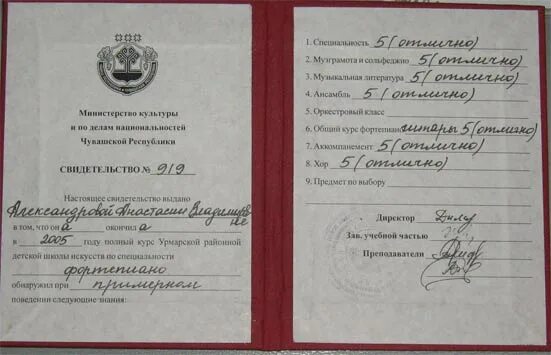 Министерство культуры
и по делам национальностей
Чувашской Республики
СВИДЕТЕЛЬСТВО № 919
Настоящее свидетельство выдано
Александровой Анастасии Владимировне
в том, что он а окончил а
в 2005 году полный курс Урмарской районной
детской школы искусств по специальности
фортепиано
обнаружил при примерном
поведении следующие знания:
1. Специальность 5 (отлично)
2. Музграмота и сольфеджио 5 (отлично)
3. Музыкальная литература 5 (отлично)
4. Ансамбль 5 (отлично)
5. Оркестровый класс
6. Общий курс фортепиано гитары 5 (отлично)
7. Аккомпанемент 5 (отлично)
8. Хор 5 (отлично)
9. Предмет по выбору
Директор
Зав. учебной частью
Преподаватели